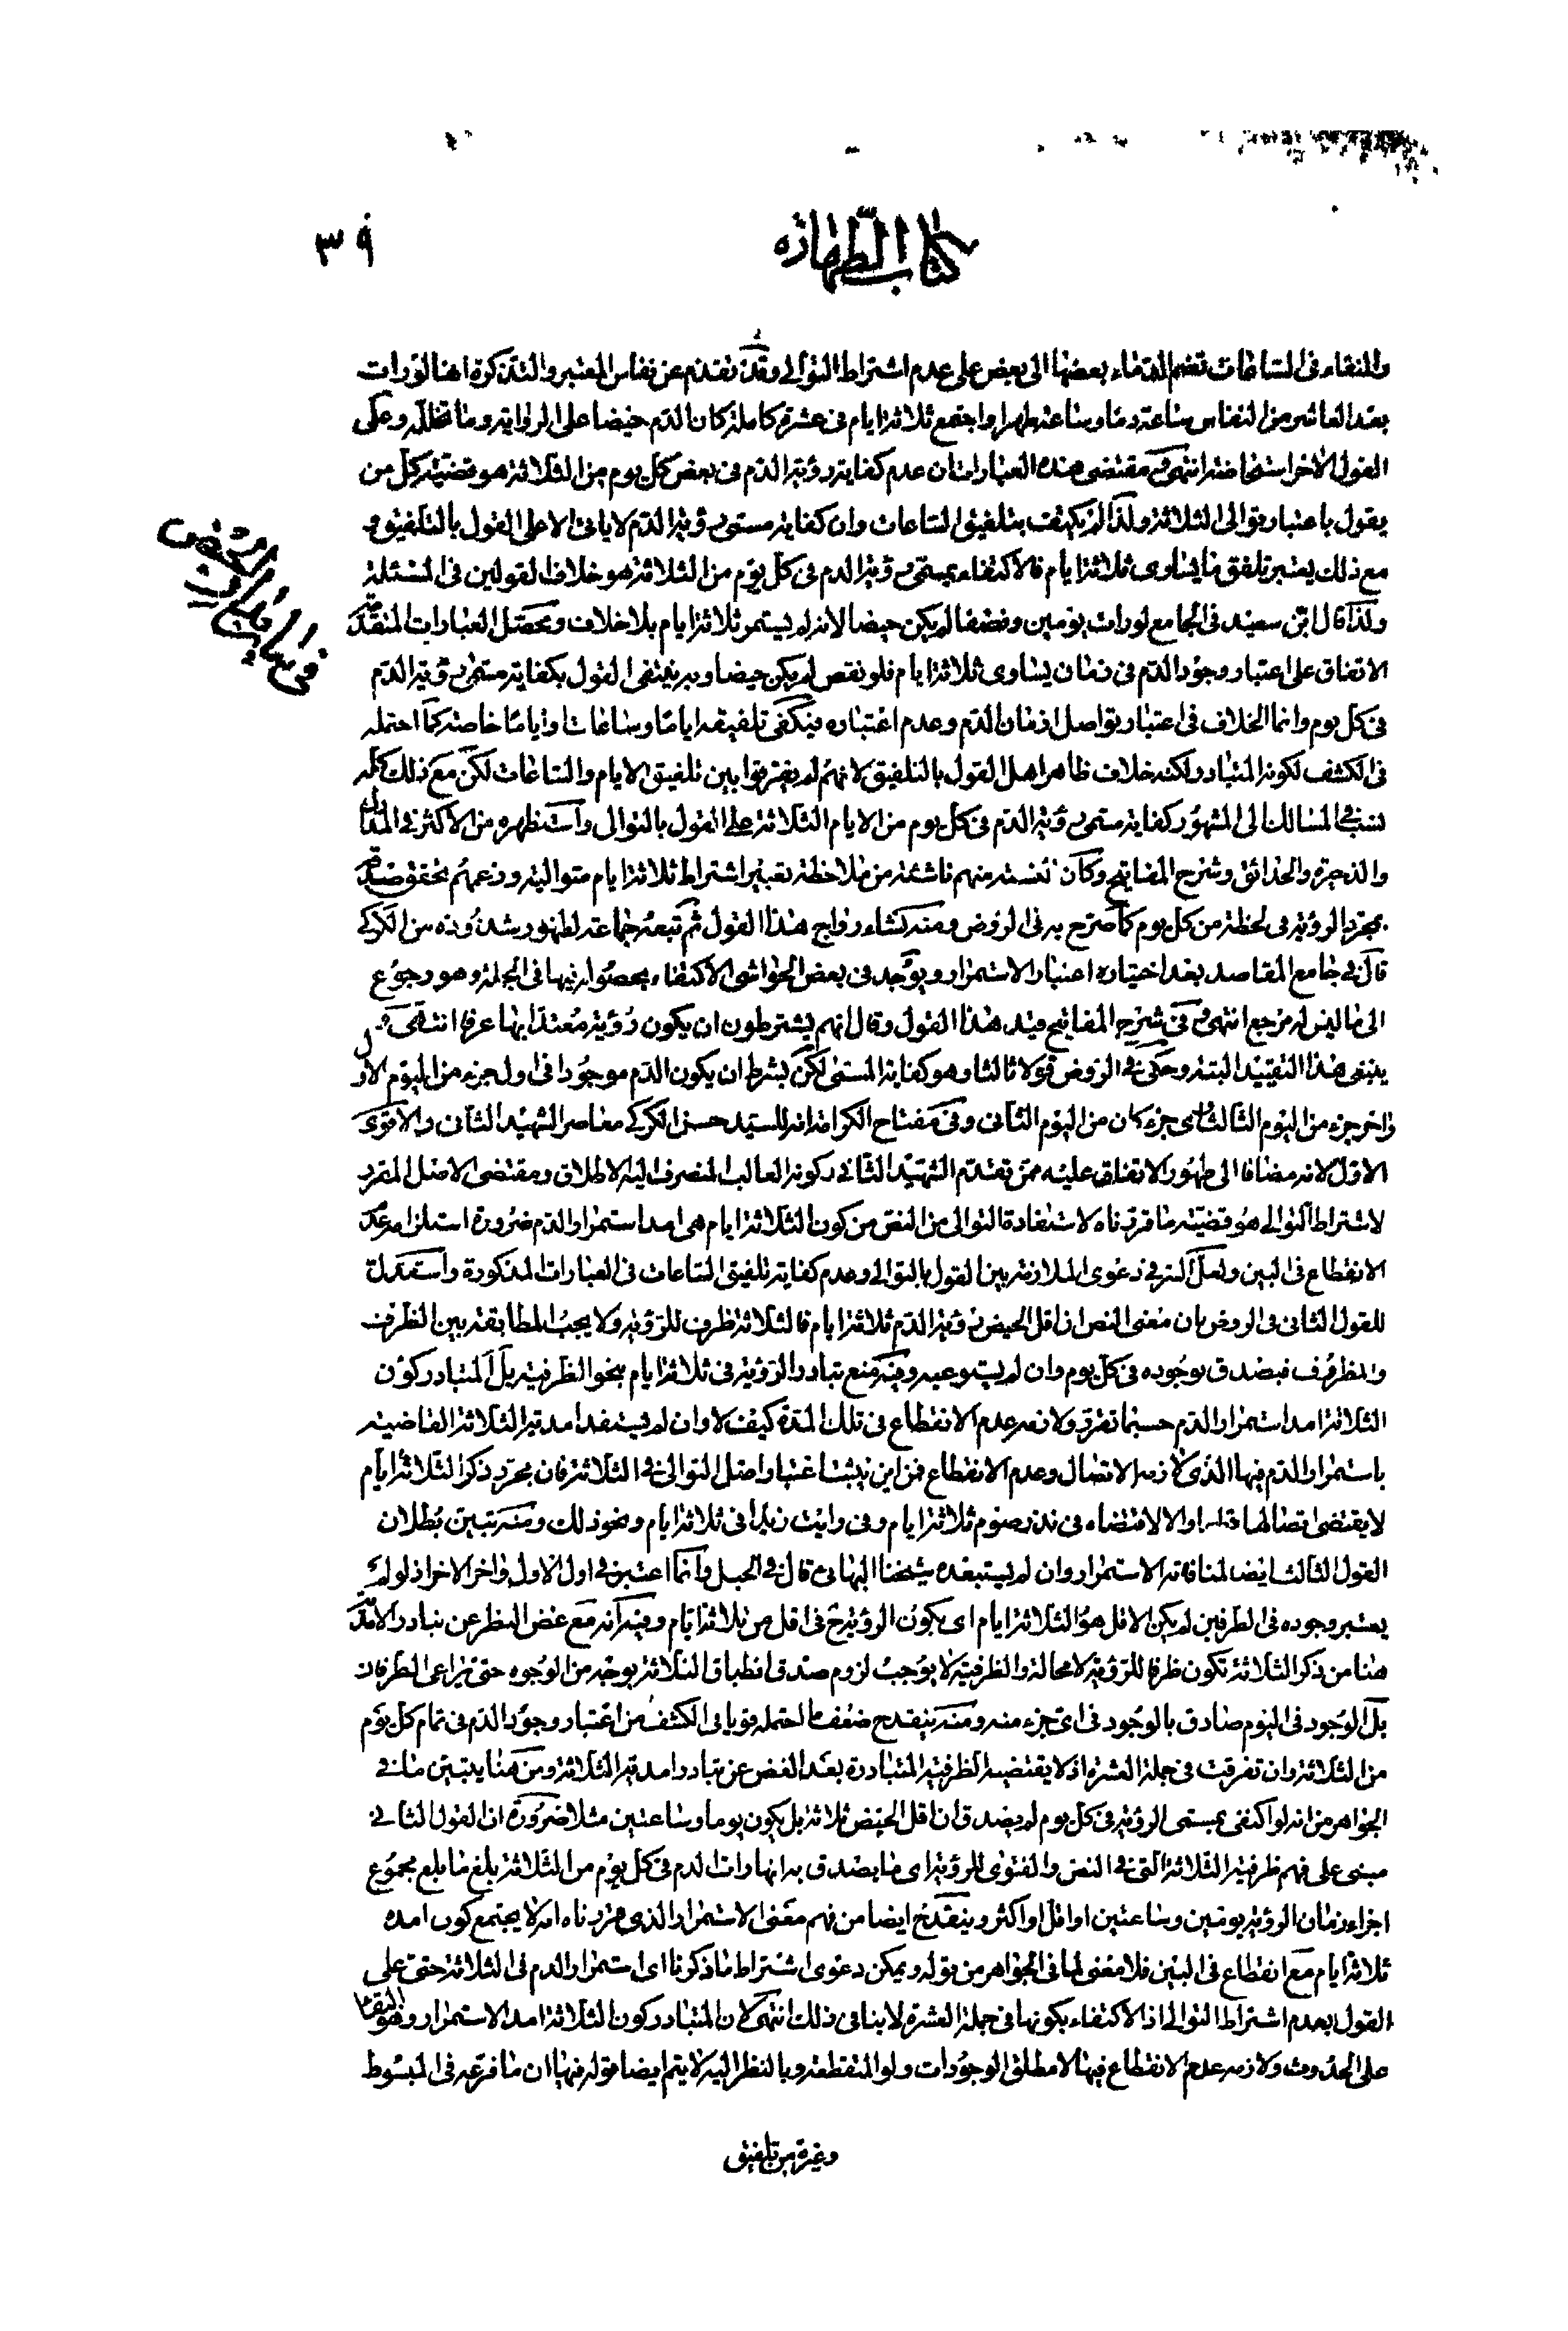 كتاب الطهارة
٣٩
والنقاء في الساعات تضم الدماء بعضها الى بعض على عدم اشتراط التوالي وقد تقدم عن نفاس المعتبر والتذكرة انها لو رات
بعد العاشر من النفاس ساعة دما وساعة طهرا واجتمع ثلاثة ايام في عشرة كاملة كان الدم حيضا على الرواية وما تخلله وعلى
القول الاخر استحاضة انتهى ومقتضى هذه العبارات ان عدم كفاية رؤية الدم في بعض كل يوم من الثلاثة هو قضية كل من
يقول باعتبار توالي الثلاثة ولذا لم يكتف بتلفيق الساعات وان كفاية مسمى رؤية الدم لا ياتى الا على القول بالتلفيق و
مع ذلك يعتبر تلفق ما يساوى ثلاثة ايام فالاكتفاء بمسمى رؤية الدم في كل يوم من الثلاثة هو خلاف القولين في المسئلة
ولذا قال ابن سعيد في الجامع لو رات يومين ونصفا لم يكن حيضا لانه لم يستمر ثلاثة ايام بلا خلاف ومحصل العبارات المتقدمة
الاتفاق على اعتبار وجود الدم في زمان يساوى ثلاثة ايام فلو نقص لم يكن حيضا وبه ينتفى القول بكفاية مسمى رؤية الدم
في كل يوم وانما الخلاف في اعتبار تواصل ازمان الدم وعدم اعتباره فيكفى تلفيقه اياما وساعات او اياما خاصة كما احتمله
في الكشف لكونه المتبادر لكنه خلاف ظاهر اهل القول بالتلفيق لانهم لم يفرقوا بين تلفيق الايام والساعات لكن مع ذلك كله
نسب في المسالك الى المشهور كفاية مسمى رؤية الدم في كل يوم من الايام الثلاثة على القول بالتوالى واستظهره من الاكثر في المدارك
والذخيرة والحدائق وشرح المفاتيح وكان نسبته منهم ناشئة من ملاحظة تعبير اشتراط ثلاثة ايام متوالية وزعمهم تحقق صدقه
بمجرد الرؤية في لحظة من كل يوم كما صرح به في الروض ومنه كنشاء رواج هذا القول ثم تبعه جماعة لظهور شذوذه من الكركي
قال في جامع المقاصد بعد اختياره اعتبار الاستمرار ويوجد في بعض الحواشى الاكتفاء بحصوله فيها في الجملة وهو رجوع
الى ما ليس له مرجع انتهى وفى شرح المفاتيح قيد هذا القول وقال انهم يشترطون ان يكون رؤية معتدا بها عرفا انتهى و
ينبغى هذا التقييد البتة وحكى في الروض قولا ثالثا وهو كفاية المسمى لكن بشرط ان يكون الدم موجودا في اول جزء من اليوم الاول
واخر جزء من اليوم الثالث واى جزء كان من اليوم الثانى وفي مفتاح الكرامة انه للسيد حسن الكركي معاصر الشهيد الثانى والاقوى
الاول لانه مضافا الى ظهور الاتفاق عليه ممن تقدم الشهيد الثاني وكونه الغالب المنصرف اليه الاطلاق ومقتضى الاصل المقرر
لاشتراط التوالي هو قضية ما قررناه لاستفادة التوالى من النص من كون الثلاثة ايام هى امد استمرار الدم ضرورة استلزامه عدم
الانقطاع في البين ولعل السر في دعوى الملازمة بين القول بالتوالي وعدم كفاية تلفيق الساعات في العبارات المذكورة واستدل
للقول الثانى في الروض بان معنى النص ان اقل الحيض رؤية الدم ثلاثة ايام فالثلاثة ظرف للرؤية ولا يجب المطابقة بين الظرف
والمظروف فيصدق بوجوده في كل يوم وان لم يستوعبه وفيه منع تبادر الرؤية في ثلاثة ايام بنحو الظرفية بل المتبادر كون
الثلاثة امد استمرار الدم حسبما تقرر ولازمه عدم الانقطاع في تلك المدة كيف لا وان لم يستفد امدية الثلاثة القاضية
باستمرار الدم فيها الذى لازمه الاتصال وعدم الانقطاع فمن اين يثبت اعتبار اصل التوالى في الثلاثة فان مجرد ذكر الثلاثة ايام
لا يقتضى اتصالها والا لاقتضاه في نذر صوم ثلاثة ايام وفي رايت زيدا في ثلاثة ايام ونحو ذلك ومنه تبين بطلان
القول الثالث ايضا لمنافاته الاستمرار وان لم يستبعده شيخنا البهائى قال في الحبل وانما اعتبر في اول الاول واخر الاخر اذ لو لم
يعتبر وجوده في الطرفين لم يكن الاقل هو الثلاثة ايام اى يكون الرؤية ح في اقل من ثلاثة ايام وفيه انه مع غض النظر عن تبادر الامدية
هنا من ذكر الثلاثة تكون ظرفا للرؤية لا محالة والظرفية لا يوجب لزوم صدق انطباق الثلاثة بوجه من الوجوه حتى يراعى الطرفان
بل الوجود في اليوم صادق بالوجود في اى جزء منه ومنه ينقدح ضعف ما احتمله قويا في الكشف من اعتبار وجود الدم في تمام كل يوم
من الثلاثة وان تفرقت في جملة العشرة اذ لا يقتضيه الظرفية المتبادرة بعد الغض عن تبادر امدية الثلاثة ومن هنا يتبين ما في
الجواهر من انه لو اكتفى بمسمى الرؤية في كل يوم لم يصدق ان اقل الحيض ثلاثة بل يكون يوما وساعتين مثلا ضرورة ان القول الثاني
مبنى على فهم ظرفية الثلاثة التى في النص والفتوى للرؤية اى ما يصدق به انها رات الدم في كل يوم من الثلاثة بلغ ما بلغ مجموع
اجزاء زمان الرؤية يومين وساعتين او اقل او اكثر وينقدح ايضا من فهم معنى الاستمرار الذى قررناه انه لا يجتمع كون امده
ثلاثة ايام مع انقطاع في البين فلا معنى لما في الجواهر من قوله ويمكن دعوى اشتراط ما ذكرنا اى استمرار الدم في الثلاثة حتى على
القول بعدم اشتراط التوالي اذ الاكتفاء بكونها في جملة العشرة لا ينافى ذلك انتهى كان المتبادر كون الثلاثة امد الاستمرار وهو البقاء
على الحدوث ولازمه عدم الانقطاع فيها لا مطلق الوجودات ولو المتقطعة وبالنظر اليه لا يتم ايضا قوله فيها ان ما فرعه في المبسوط
وغيره من تلفيق